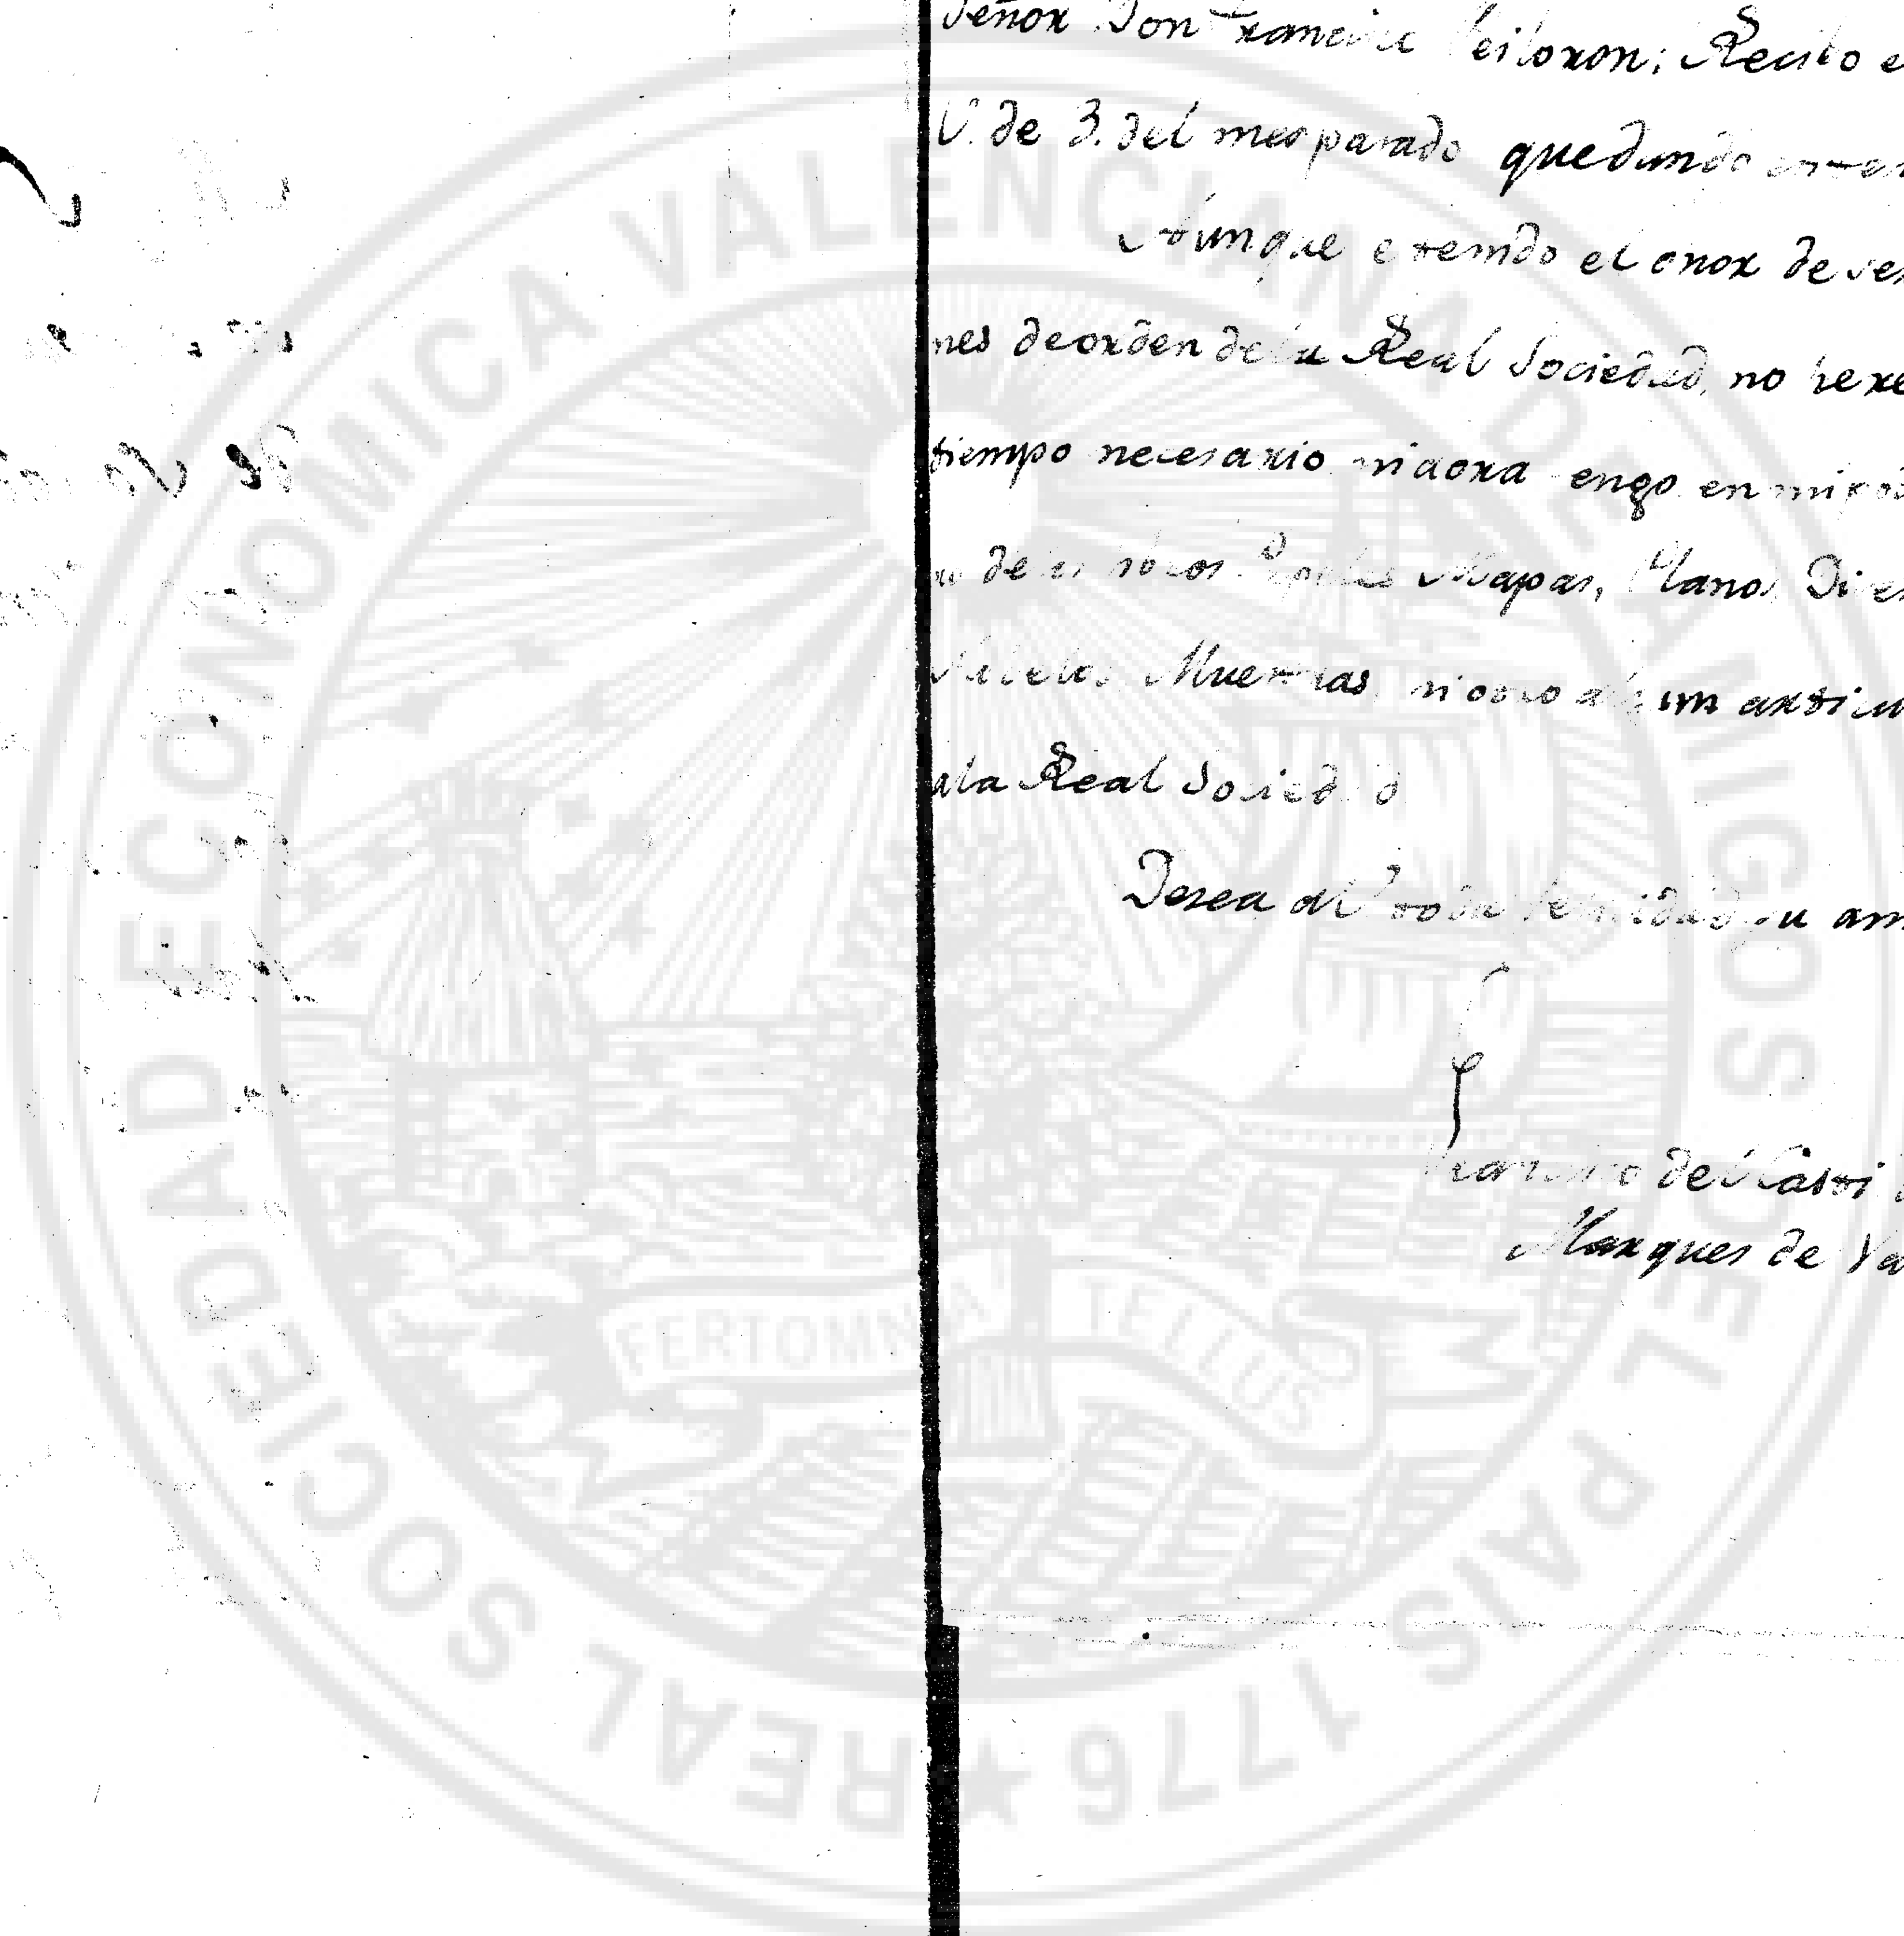 Señor Don Francisco Peiloron; Recibo e
V. de 3. del mes pasado quedando enter
Aunque e tenido el onor de ser
nes de orden de la Real Sociedad, no here
tiempo necesario ni aora tengo en mi pod
de Mapas, Planos, Diver
Muestras, ni otro algun articu
ala Real Sociedad
Desea a V. toda felicidad su am
Francisco del Casti
Marques de Va
REAL SOCIEDAD ECONOMICA VALENCIANA DE AMIGOS DEL PAIS 1776
FERT OMNIA TELLUS